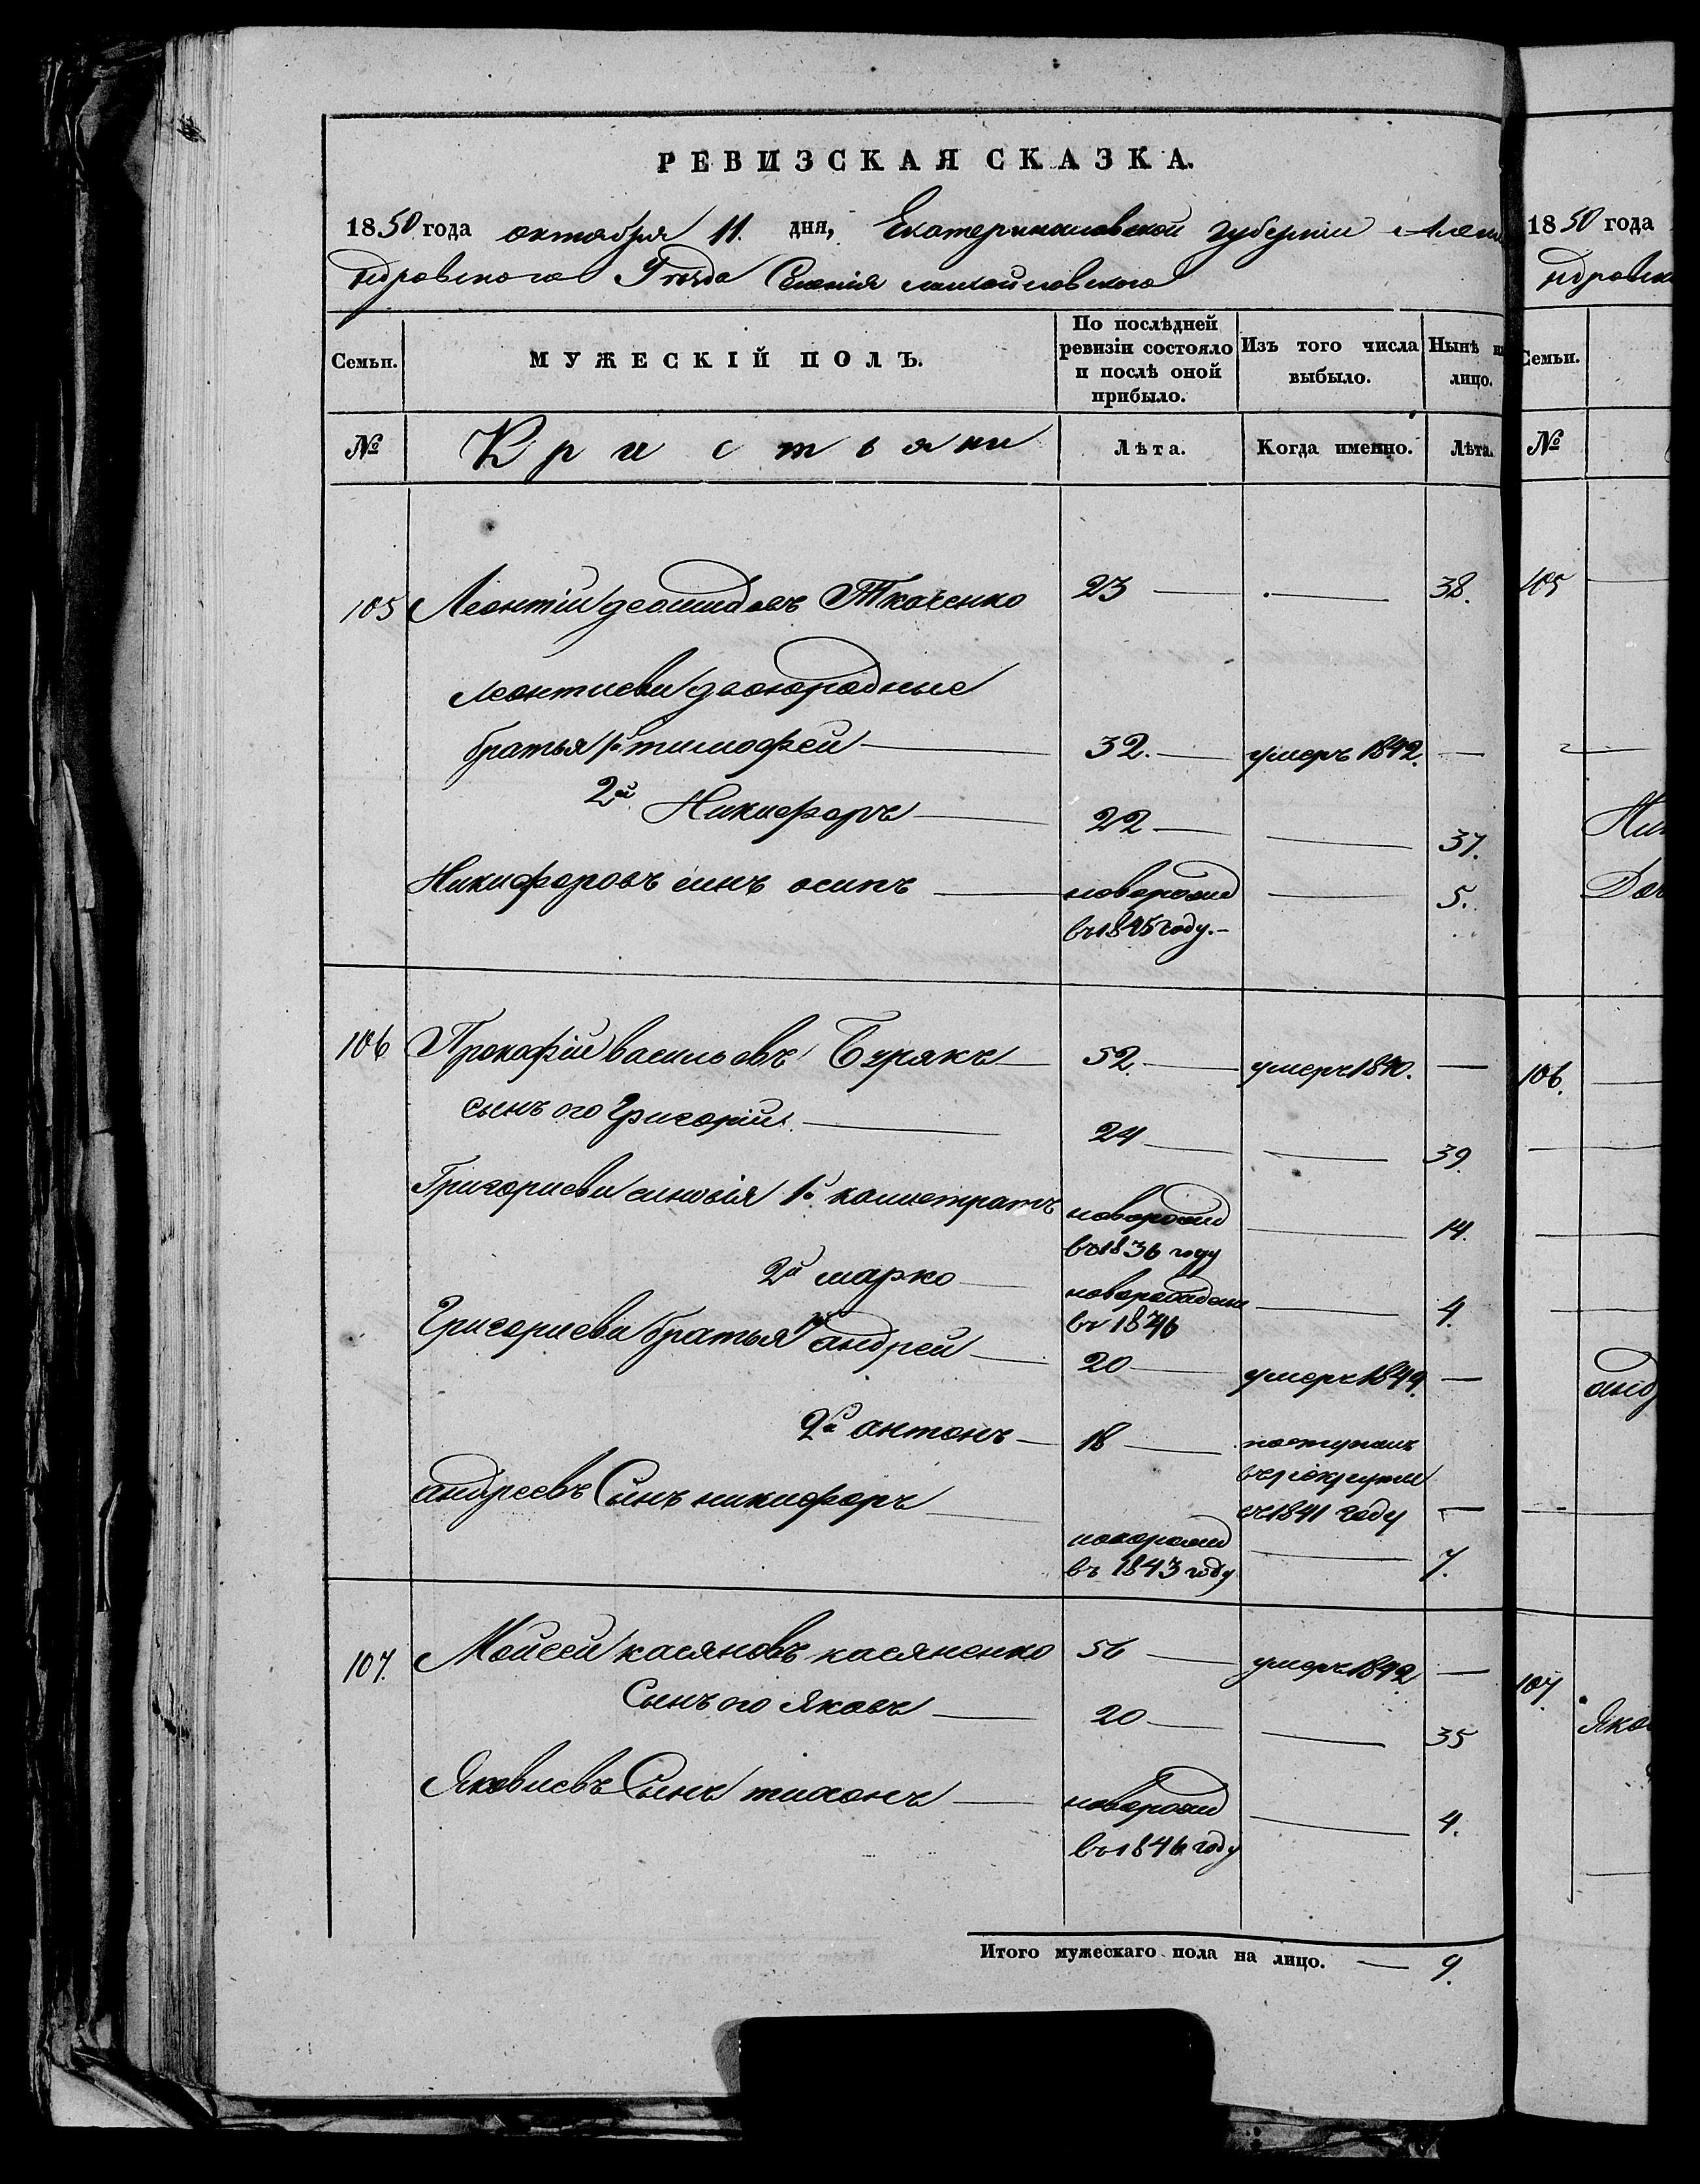 РЕВИЗСКАЯ СКАЗКА.
1850 года октября 11. дня, Екатеринославской губернии Алекса
ндровского Уезда Селения михайловского
Семьи. МУЖЕСКІЙ ПОЛЪ. По послѣдней ревизіи состояло и послѣ оной прибыло. Изъ того числа выбыло. Нынѣ на лицо.
№ Кристьяни Лѣта. Когда именно. Лѣта.
105 Леонтій Ткаченко 23 — — 38.
Леонтиеви двоюродные
братья 1й тимофей — 32. — умеръ 1842. —
2й Никифоръ — 22 — — 37.
Никифоровъ синъ осипъ — новорожд — 5.
въ 1845 году. —
106 Прокофій васильевъ Бурякъ — 52. — умеръ 1840. —
сынъ его Григорій — 24 — — 39.
Григориеви синовія 1й калистратъ новорожд — 14.
въ 1836 году
2й марко — новорожден — 4.
въ 1846
Григориеви братья 1й андрей — 20 — умеръ 1849. —
2й антонъ — 18 — поступилъ
в рекруты
въ 1841 году —
андреевъ Сынъ никифоръ — новорожд — 7.
въ 1843 году
107. Мойсей касяновъ касяненко 56 — умеръ 1842 —
Сынъ его Яковъ — 20 — — 35
Яковиевъ Сынъ тихонъ — новорожд — 4.
въ 1846 году
Итого мужескаго пола на лицо. — 9.
1850 года
ндровско
Семьи.
№
105
Ник
Доч
106.
анд
107
Яко